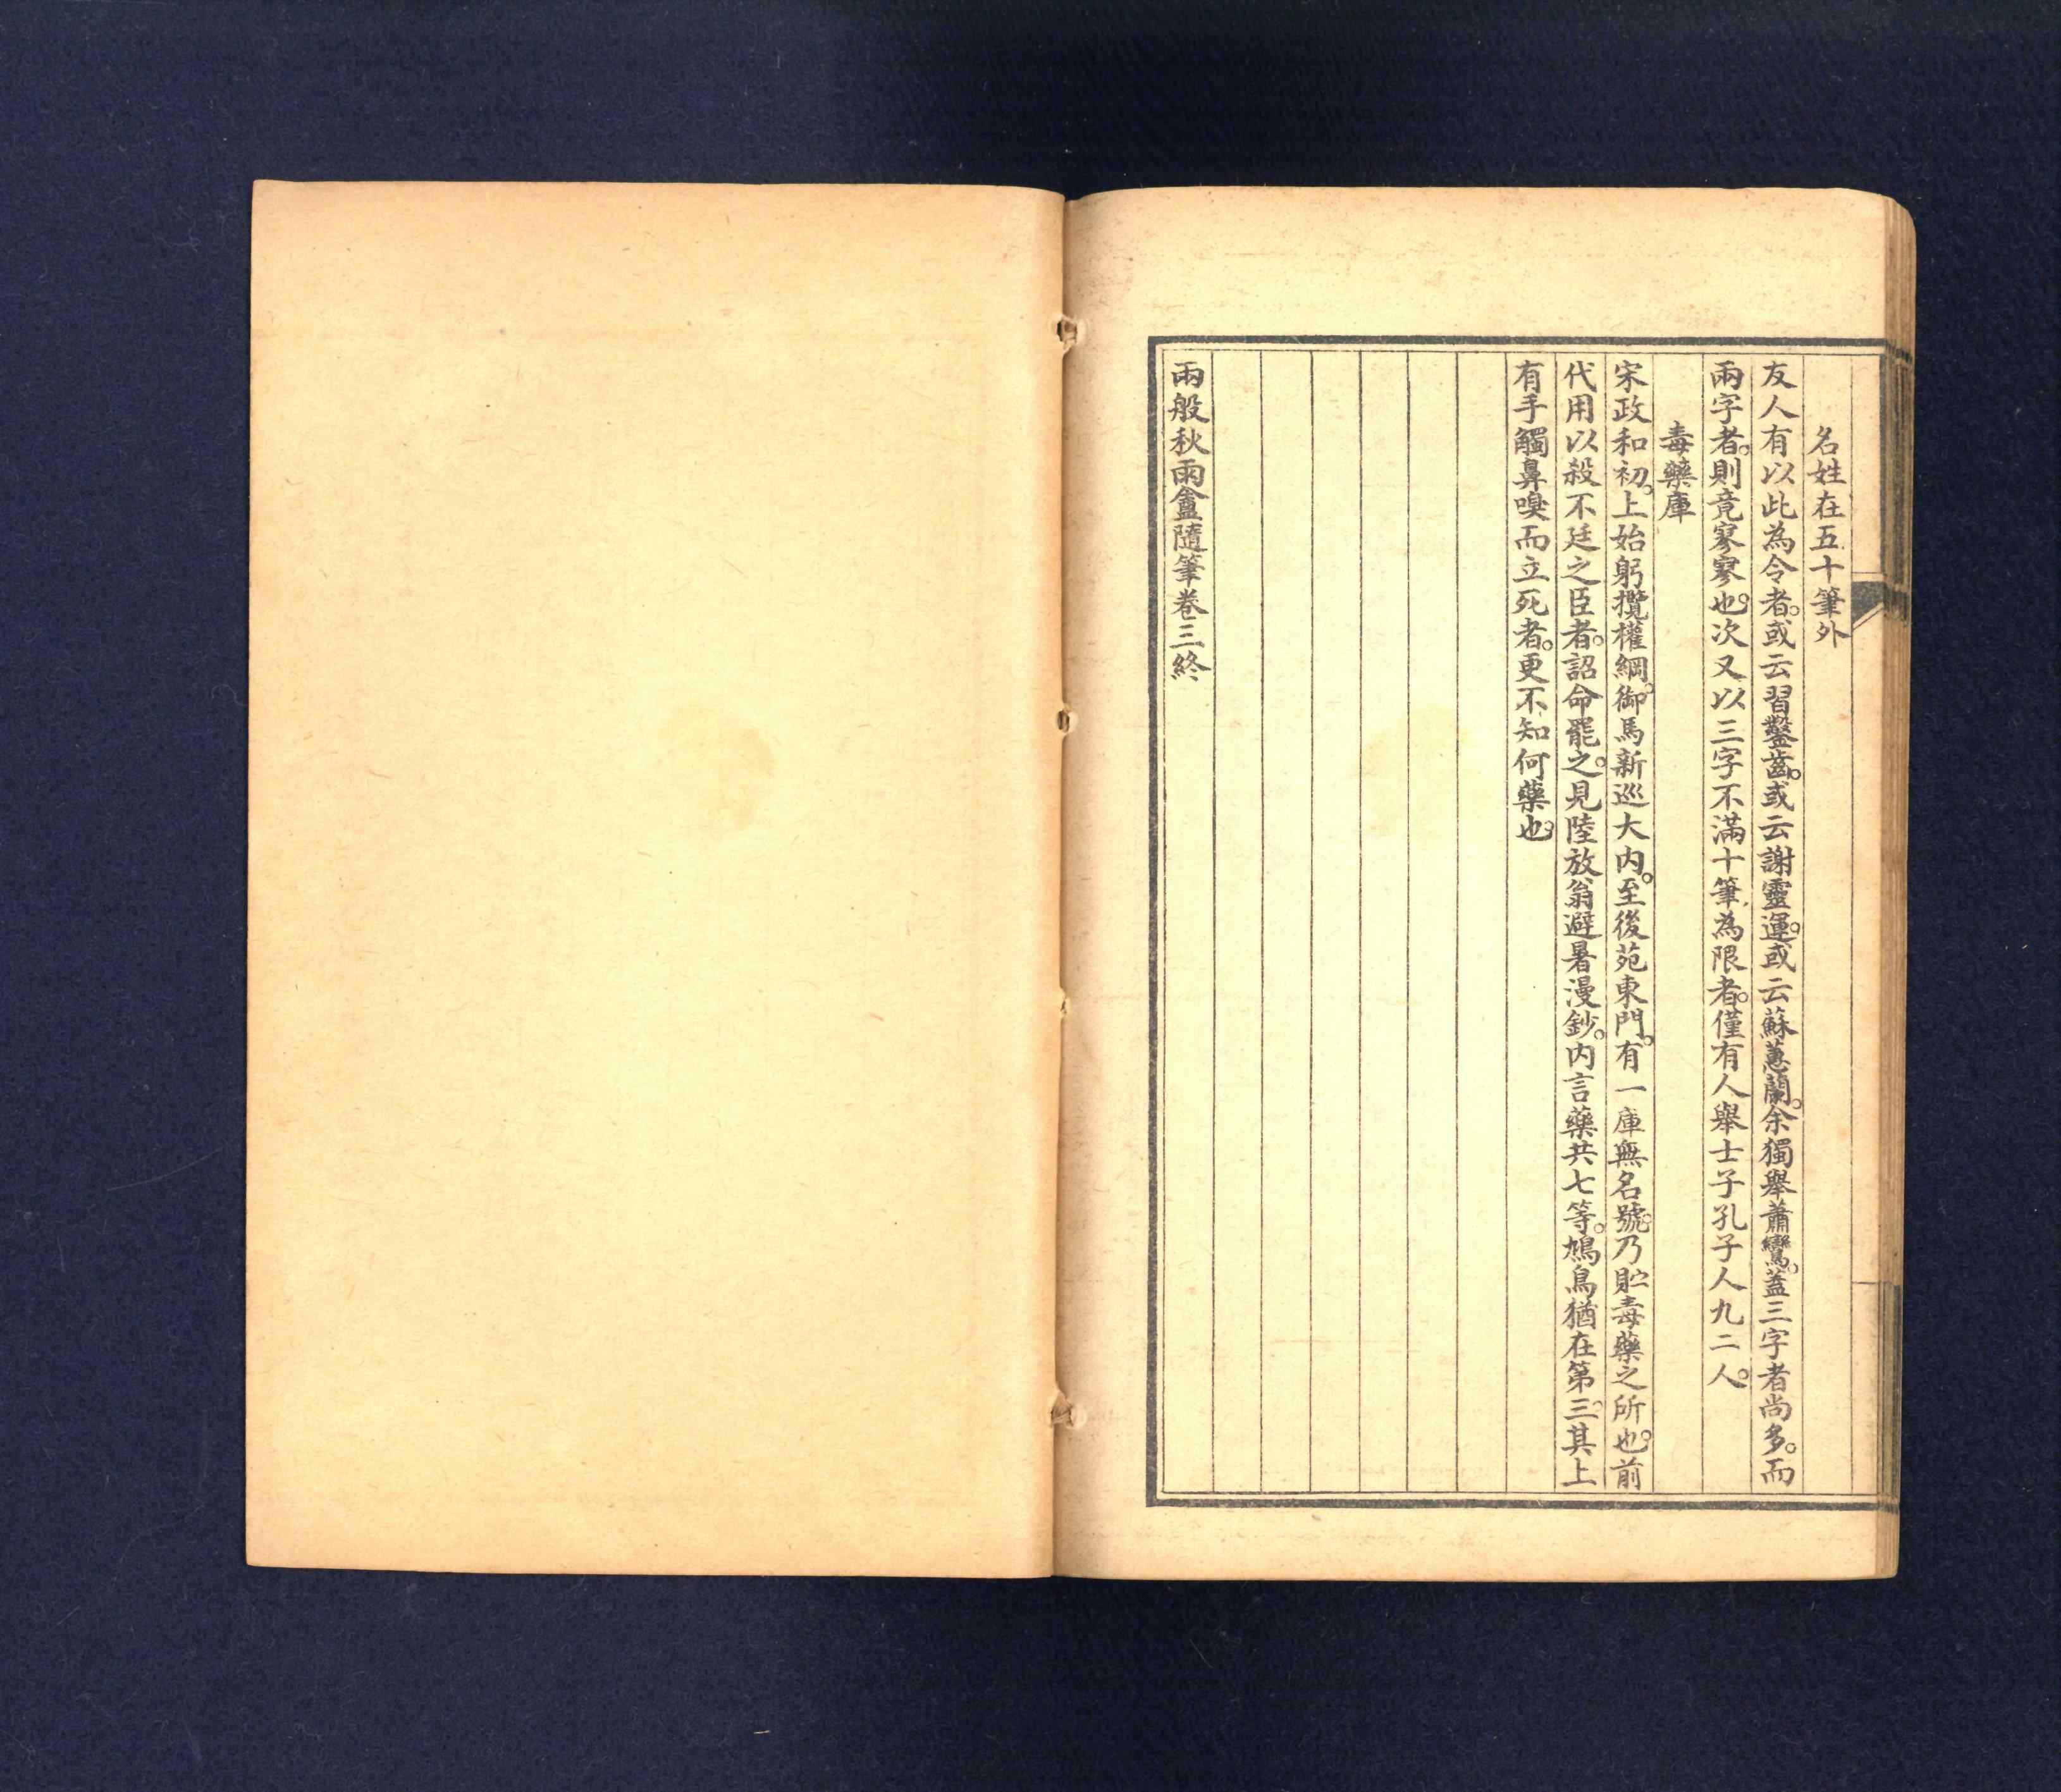 名姓在五十筆外
友人有以此為令者。或云習鑿齒。或云謝靈運。或云蘇蕙蘭。余獨舉蕭鸞。蓋三字者尚多。而
兩字者。則竟寥寥也。次又以三字不滿十筆為限者。僅有人舉士子孔子人九二人。
毒藥庫
宋政和初。上始躬攬權綱。御馬新巡大內。至後苑東門。有一庫無名號。乃貯毒藥之所也。前
代用以殺不廷之臣者。詔命罷之。見陸放翁避暑漫鈔。內言藥共七等。鴆鳥猶在第三。其上
有手觸鼻嗅而立死者。更不知何藥也。
兩般秋雨盦隨筆卷三終